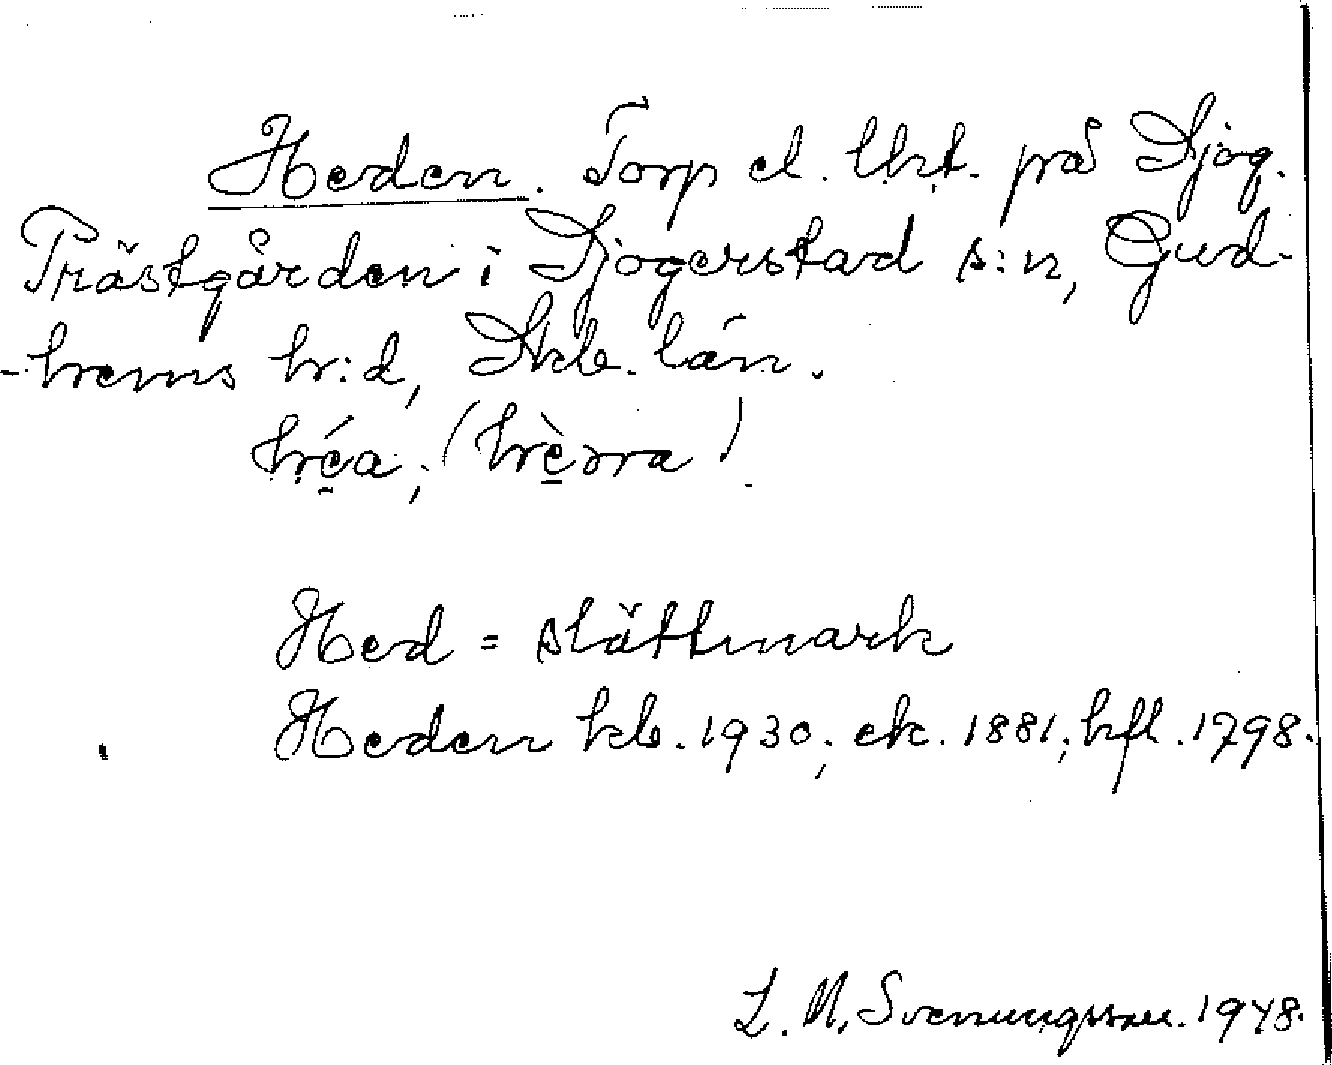 Heden. Torp el. lht. på Sjog.
Prästgården i Sjogerstad s:n, Gud-
-hems hr:d, Skb. län.
héa; (hèɔra).
Hed = slättmark
Heden kb. 1930; ek. 1881; hfl. 1798.
L. M. Svenungsson. 1948.